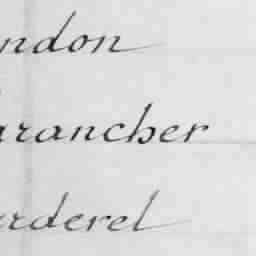 ndon
arancher
arderel